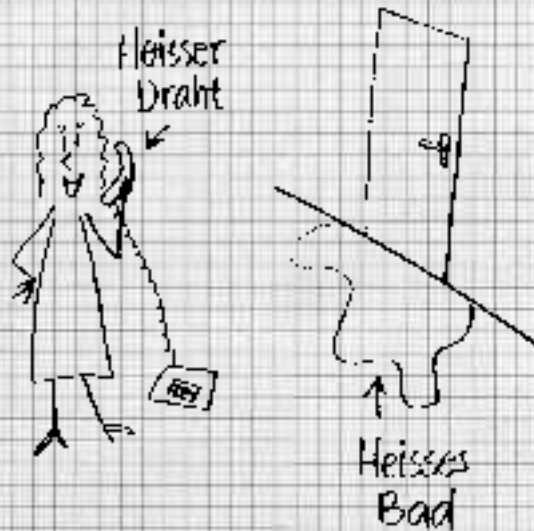 Heisser
Draht
Heisses
Bad